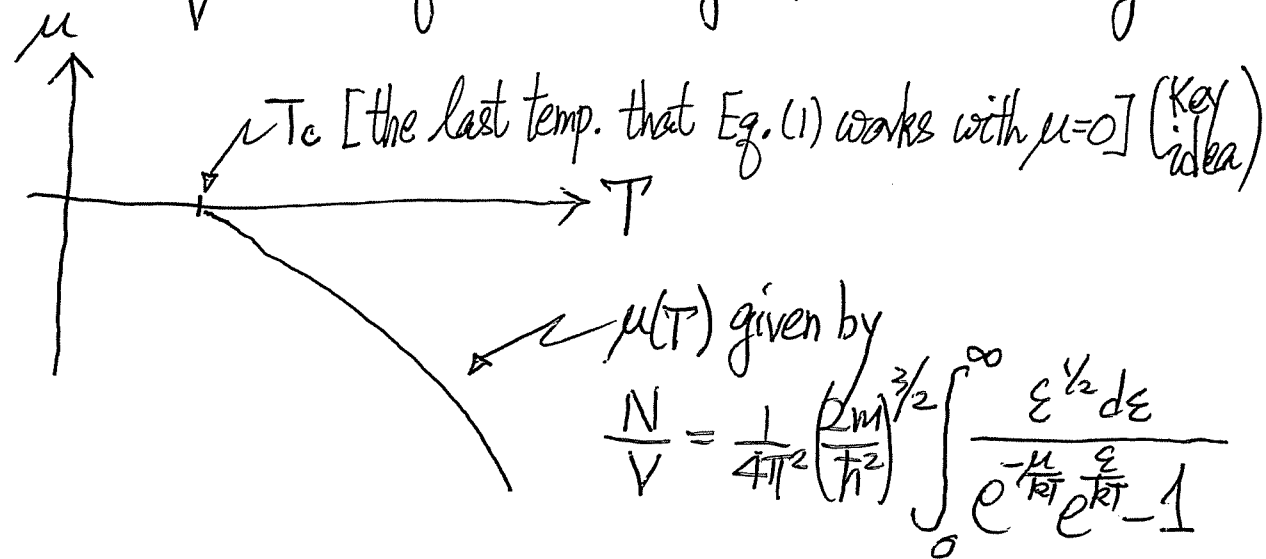 μ
Tc [the last temp. that Eq. (1) works with μ=0] (Key idea)
T
μ(T) given by
N/V = 1/4π² (2m/ħ²)^3/2 ∫₀^∞ ε^1/2 dε / (e^(-μ/kT) e^(ε/kT) - 1)